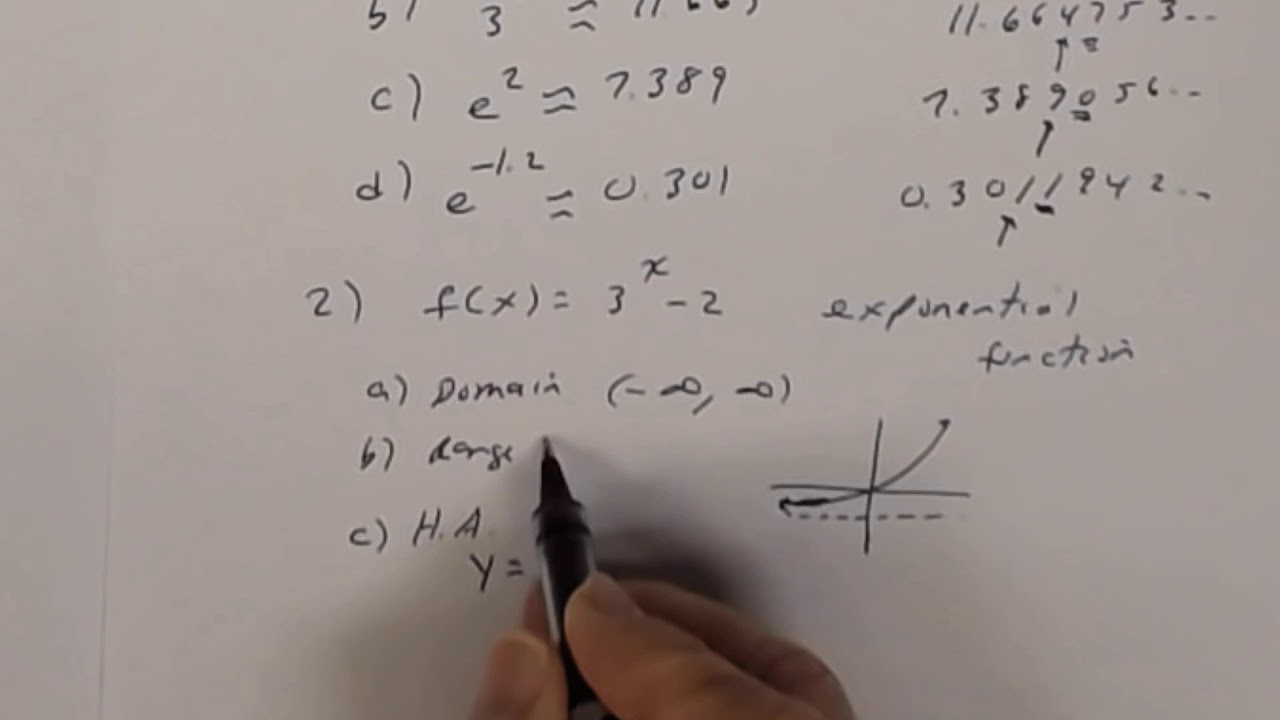 b) 3 ≈ 11.665
11.664753...
c) e^2 ≈ 7.389
7.389056...
d) e^-1.2 ≈ 0.301
0.3011942...
2) f(x) = 3^x - 2 exponential
function
a) Domain (-∞, ∞)
b) Range
c) H.A.
y =